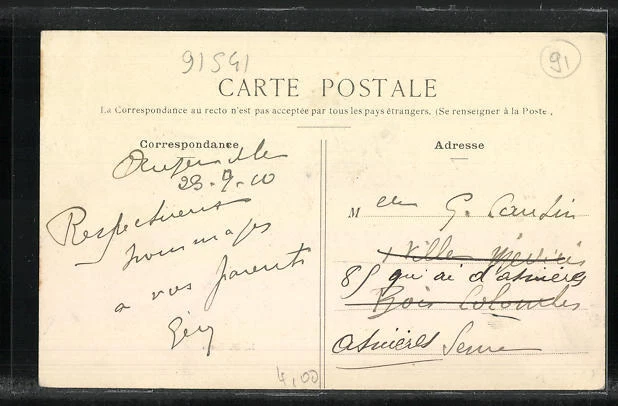 91541
91
CARTE POSTALE
La Correspondance au recto n'est pas acceptée par tous les pays étrangers. (Se renseigner à la Poste.
Correspondance
23-9-10
Respectueux
hommages
a vos parents
Géry
Adresse
Melle G.
Villa
85 quai d'asnières
Bois Colombes
Asnières Seine
4,00